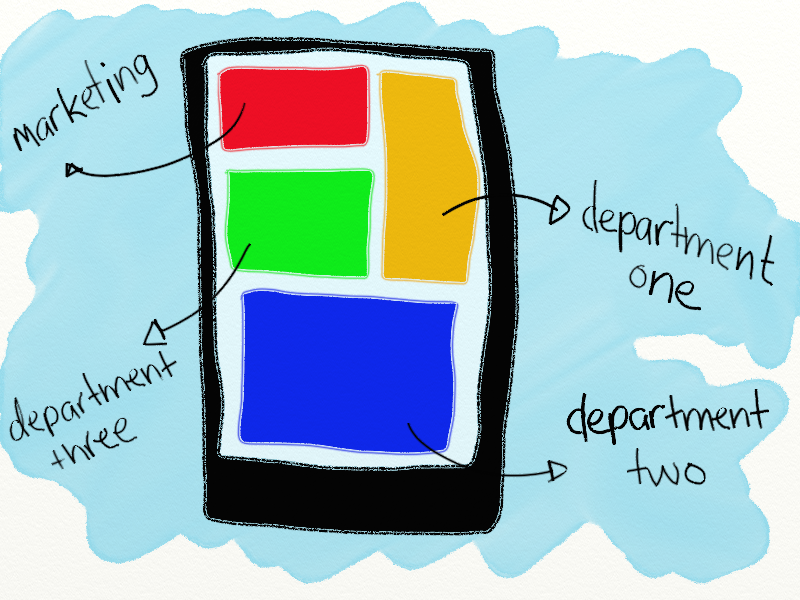 marketing
department
one
department
three
department
two